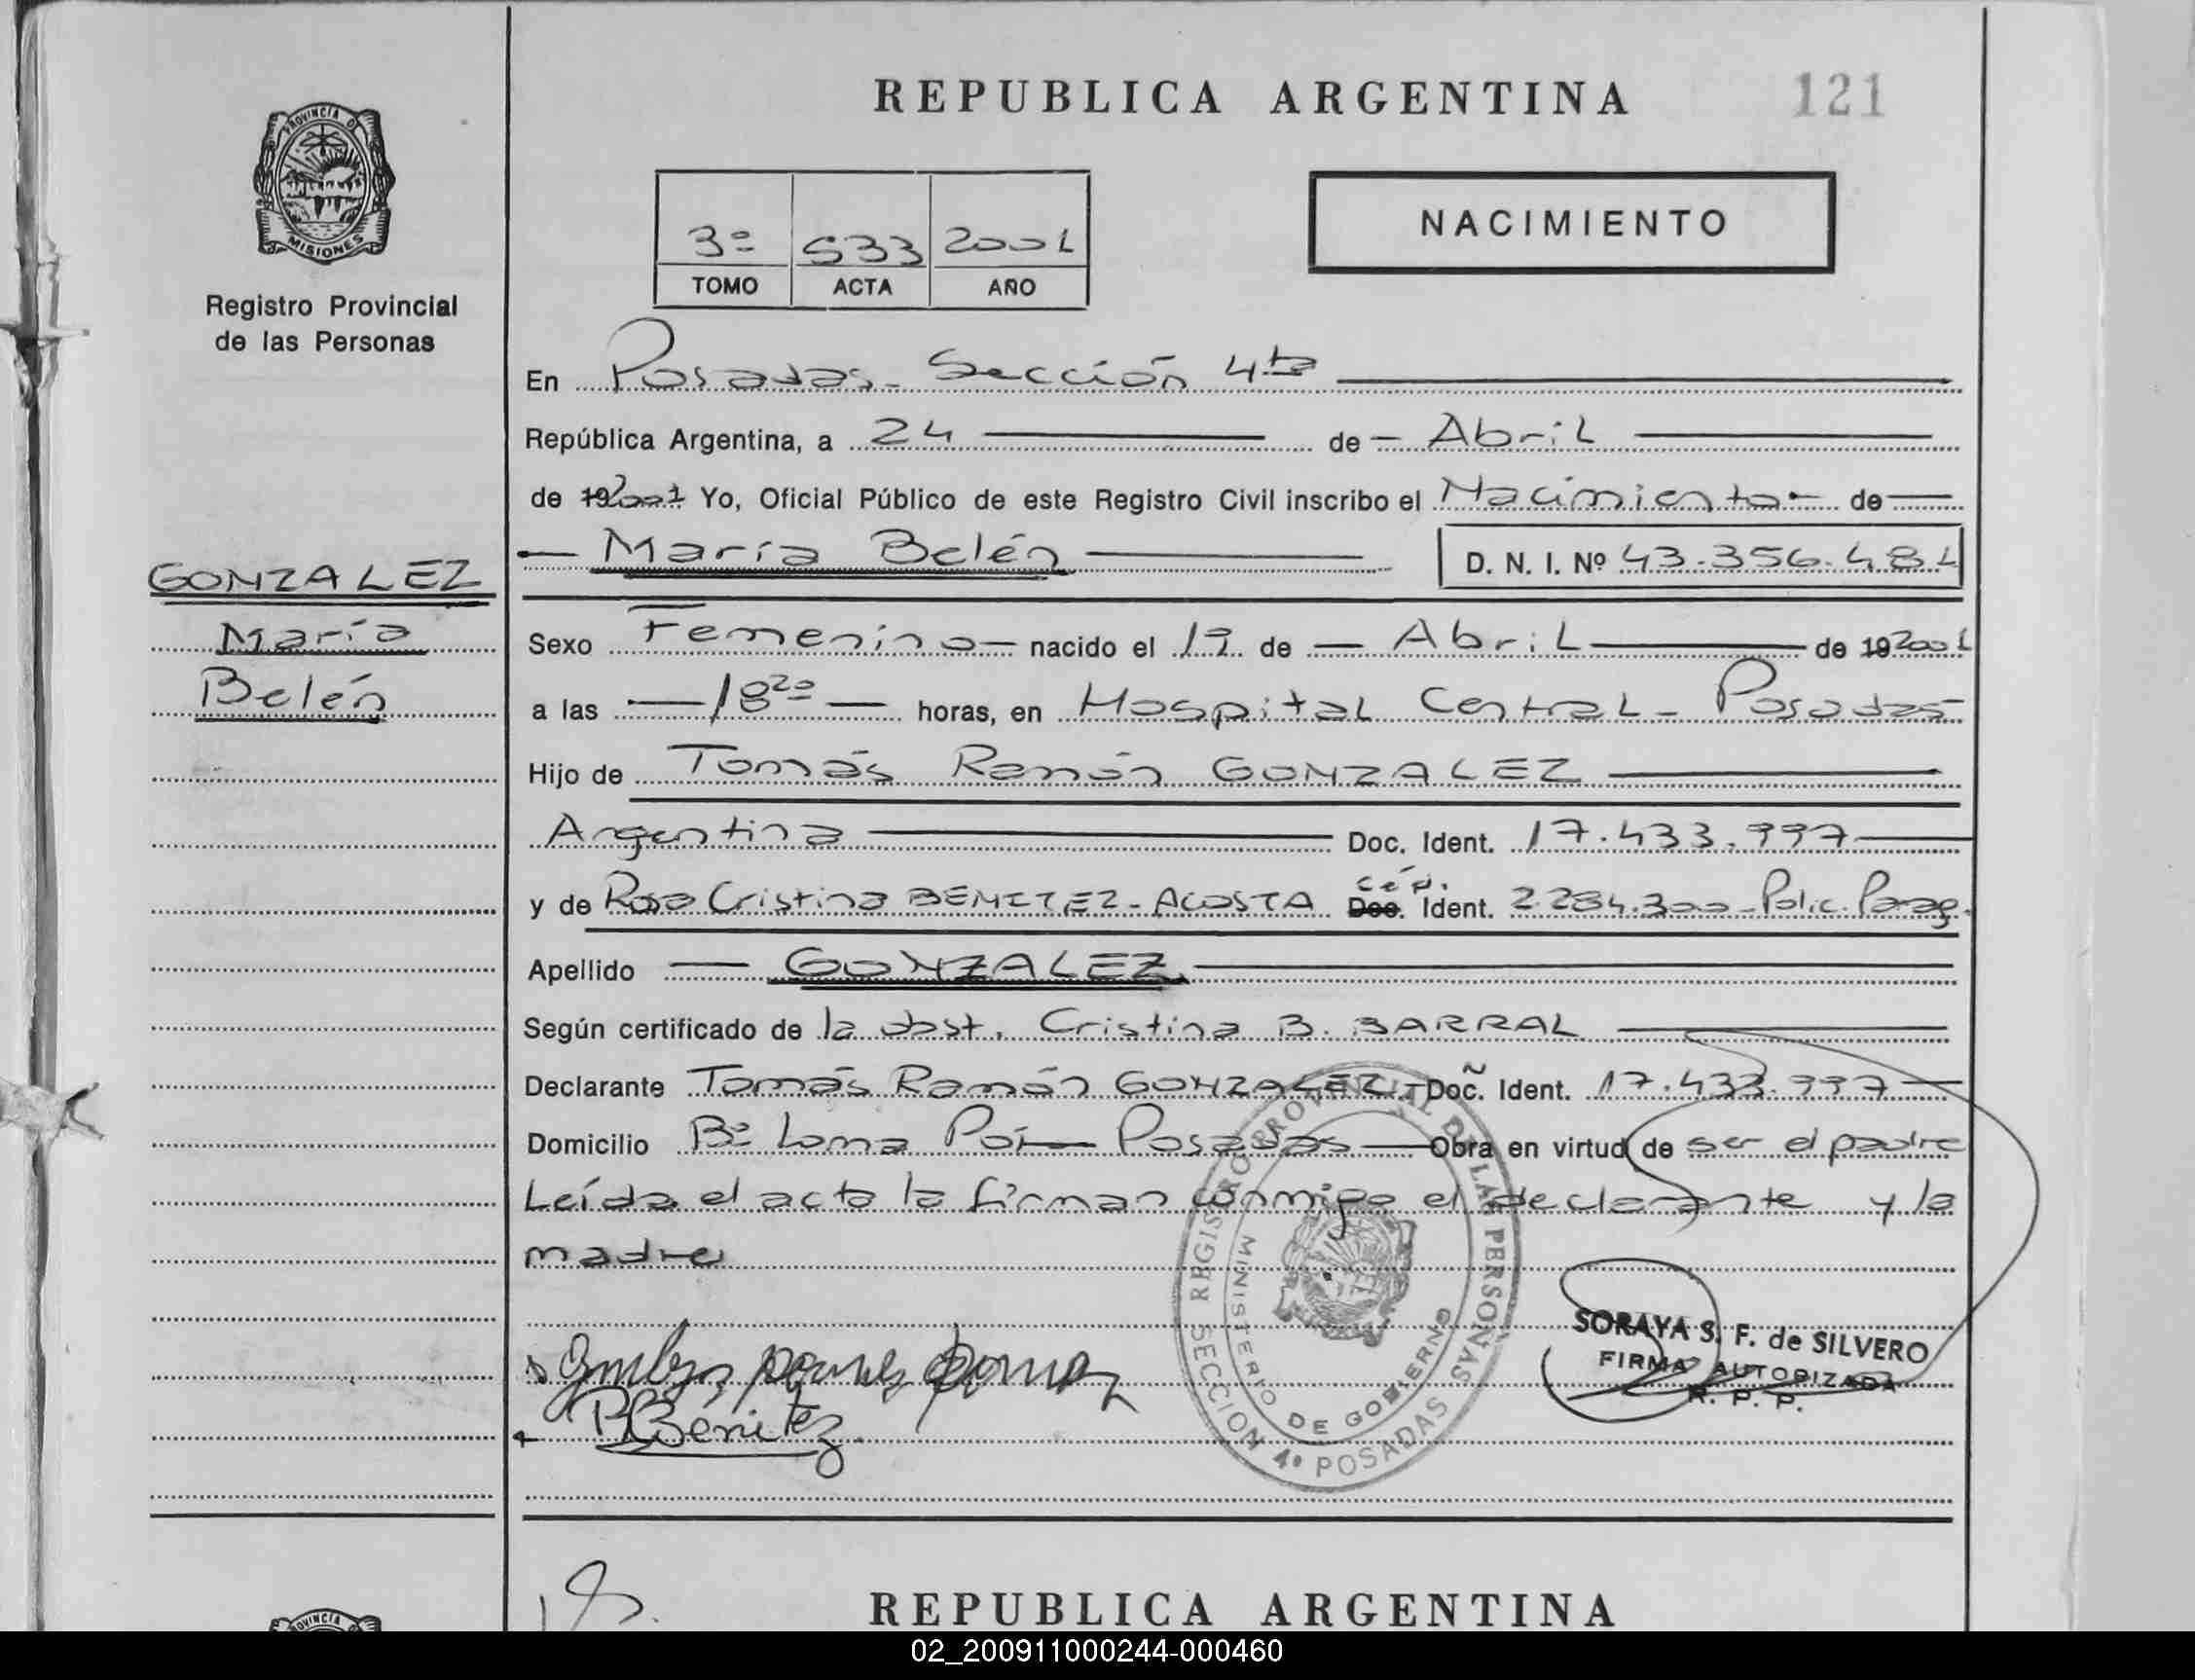 REPUBLICA ARGENTINA
121
PROVINCIA DE
MISIONES
Registro Provincial
de las Personas
3º 533 2001
TOMO ACTA AÑO
NACIMIENTO
En Posadas - Sección 4ta
República Argentina, a 24 de Abril
de 192001 Yo, Oficial Público de este Registro Civil inscribo el Nacimiento de
María Belén D. N. I. Nº 43.356.481
GONZALEZ
María
Belén
Sexo Femenino nacido el 19 de Abril de 192001
a las 18 20 horas, en Hospital Central - Posadas
Hijo de Tomás Ramón GONZALEZ
Argentina Doc. Ident. 17.433.997
y de Rosa Cristina BENITEZ - ACOSTA Céd. Doc. Ident. 2.284.300 - Polic. Parag.
Apellido GONZALEZ
Según certificado de la obst. Cristina B. BARRAL
Declarante Tomás Ramón GONZALEZ Doc. Ident. 17.433.997
Domicilio Bº Loma Poí - Posadas Obra en virtud de ser el padre
Leída el acta la firman conmigo el declarante y la
madre
REGISTRO PROVINCIAL DE LAS PERSONAS
MINISTERIO DE GOBIERNO
SECCION 4º POSADAS
SORAYA S. F. de SILVERO
FIRMA AUTORIZADA
R. P. P.
Benitez
REPUBLICA ARGENTINA
PROVINCIA
02_200911000244-000460